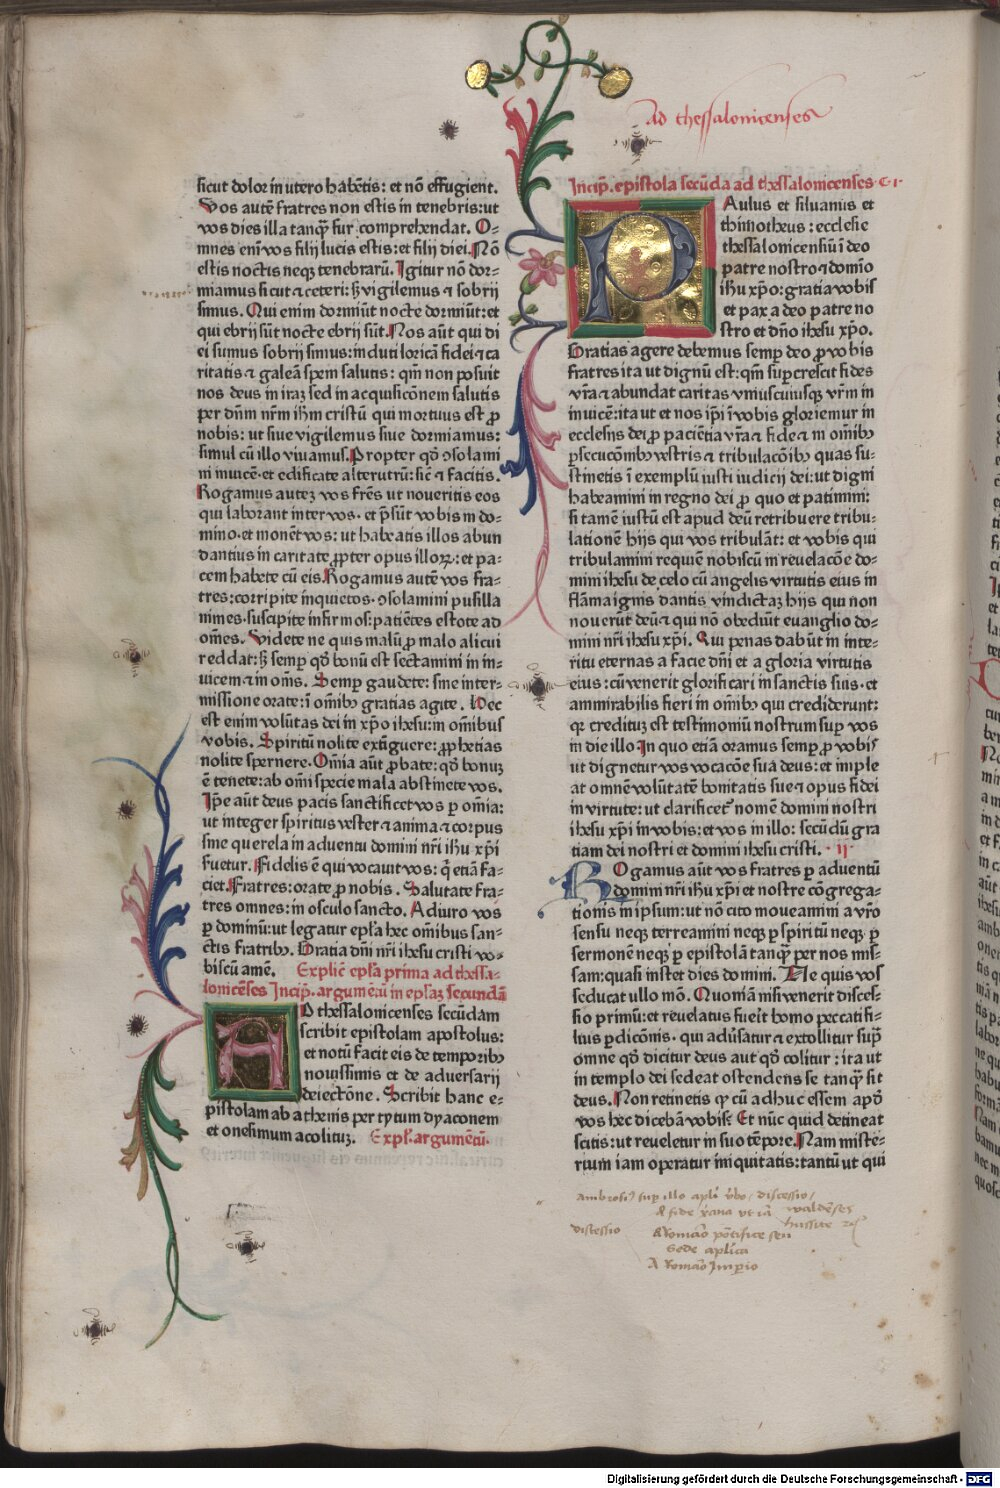 Ad thessalonicenses
sicut dolor in utero habẽtis: et nõ effugient.
Vos autẽ fratres non estis in tenebris: ut
vos dies illa tanq̃ fur comprehendat. O-
mnes eni vos filij lucis estis: et filij diei. Nõ
estis noctis neqz tenebrarũ. Igitur nõ dor-
miamus sicut ⁊ ceteri: sz vigilemus ⁊ sobrij
simus. Qui enim dormiũt nocte dormiũt: et
qui ebrij sũt nocte ebrij sũt. Nos aũt qui di
ei sumus sobrij simus: induti loricã fidei ⁊ ca
ritatis ⁊ galeã spem salutis: qm̃ non posuit
nos deus in iraz sed in acquisicõnem salutis
per dñm nr̃m ihm̃ cristũ qui mortuus est ꝓ
nobis: ut siue vigilemus siue dormiamus:
simul cũ illo viuamus. Propter qd̃ ɔsolami
ni inuicẽ. et edificate alterutrũ: sic̃ ⁊ facitis.
Rogamus autez vos fr̃es ut noueritis eos
qui laborant inter vos. et p̃sũt vobis in do-
mino. et monẽt vos: ut habeatis illos abun
dantius in caritate ꝓpter opus illoꝝ: et pa-
cem habete cũ eis. Rogamus autẽ vos fra-
tres: corripite inquietos. ɔsolamini pusilla
nimes. suscipite infirmos: patiẽtes estote ad
om̃es. Videte ne quis malũ ꝓ malo alicui
reddat: sz semp̱ qd̃ bonũ est sectamini in in-
uicem ⁊ in om̃s. Semp̱ gaudete: sine inter-
missione orate: ĩ om̃ibꝫ gratias agite. Hec
est enim volũtas dei in xp̃o ihesu: in om̃ibus
vobis. Spiritũ nolite extĩguere: ꝓphetias
nolite spernere. Om̃ia aũt ꝓbate: qd̃ bonuz
ẽ tenete: ab om̃i specie mala abstinete vos.
Ip̃e aũt deus pacis sanctificet vos p̱ om̃ia:
ut integer spiritus vester ⁊ anima ⁊ corpus
sine querela in aduentu domini nr̃i ihũ xp̃i
seruetur. Fidelis ẽ qui vocauit vos: q̃ etiã fa-
ciet. Fratres: orate ꝓ nobis. Salutate fra-
tres omnes: in osculo sancto. Adiuro vos
p̱ dominũ: ut legatur ep̃sa hec om̃ibus san-
ctis fratribꝫ. Gratia dñi nr̃i ihesu cristi vo-
biscũ amẽ. Explic̃ ep̃sa prima ad thessa-
lonicẽses Incip̃. argumẽtũ in ep̃saz secundã
AD thessalonicenses secũdam
scribit epistolam apostolus:
et notũ facit eis de temporibꝫ
nouissimis et de aduersarij
deiectõne. Scribit hanc e-
pistolam ab athenis per tytum dyaconem
et onesimum acolituz. Expl̃. argumẽtũ.
Incip̃. epistola secũda ad thessalonicenses. C. I.
PAulus et siluanus et
thimotheus: ecclesie
thessalonicensiũ ĩ deo
patre nostro ⁊ domĩo
ihũ xp̃o: gratia vobis
et pax a deo patre no
stro et dño ihesu xp̃o.
Gratias agere debemus semp̱ deo ꝓ vobis
fratres ita ut dignũ est: qm̃ sup̱crescit fides
vr̃a ⁊ abundat caritas vniuscuiusqz vr̃m in
inuicẽ: ita ut et nos ip̃i ĩ vobis gloriemur in
ecclesijs dei ꝓ paciẽtia vr̃a ⁊ fide ⁊ in om̃ibꝫ
p̱secucõibꝫ vestris ⁊ tribulacõibꝫ quas su-
stinetis ĩ exemplũ iusti iudicij dei: ut digni
habeamini in regno dei ꝓ quo et patimini:
si tamẽ iustũ est apud deũ retribuere tribu-
lationẽ hijs qui vos tribulãt: et vobis qui
tribulamini requiẽ nobiscũ in reuelacõe do-
mini ihesu de celo cũ angelis virtutis eius in
flãma ignis dantis vindictaz hijs qui non
nouerũt deũ ⁊ qui nõ obediũt euanglio do-
mini nr̃i ihesu xp̃i. Qui penas dabũt in inte-
ritu eternas a facie dñi et a gloria virtutis
eius: cũ venerit glorificari in sanctis suis. et
ammirabilis fieri in om̃ibꝫ qui crediderunt:
qr credituz est testimoniũ nostrum sup̱ vos
in die illo. In quo etiã oramus semp̱ ꝓ vobis
ut dignetur vos vocacõe sua deus: et imple
at omnẽ volũtatẽ bonitatis sue ⁊ opus fidei
in virtute: ut clarificet̃ nomẽ domini nostri
ihesu xp̃i in vobis: et vos in illo: secũdũ gra
tiam dei nostri et domini ihesu cristi. II
ROgamus aũt vos fratres p̱ aduentũ
domini nr̃i ihũ xp̃i et nostre cõgrega-
tionis in ipsum: ut nõ cito moueamini a vr̃o
sensu neqz terreamini neqz p̱ spiritũ neqz p̱
sermonẽ neqz p̱ epistolã tanq̃ per nos mis-
sam: quasi instet dies domini. Ne quis vos
seducat ullo mõ. Quoniã nisi venerit disces-
sio primũ: et reuelatus fuerit homo peccati fi-
lius p̱dicõnis. qui adũsatur ⁊ extollitur sup̱
omne qd̃ dicitur deus aut qd̃ colitur: ita ut
in templo dei sedeat ostendens se tanq̃ sit
deus. Non retinetis qr cũ adhuc essem apd̃
vos hec dicebã vobis? Et nũc quid detineat
scitis: ut reueletur in suo tẽpore. Nam miste-
rium iam operatur iniquitatis: tantũ ut qui
Ambrosiꝰ sup̱ illo apl̃i v̾bo, discessio,
A fide xr̃ana ut iã waldẽses
hussite
discessio A Romão põtifice seu
sede aplica
A Romão Imp̱io
Digitalisierung gefördert durch die Deutsche Forschungsgemeinschaft - DFG